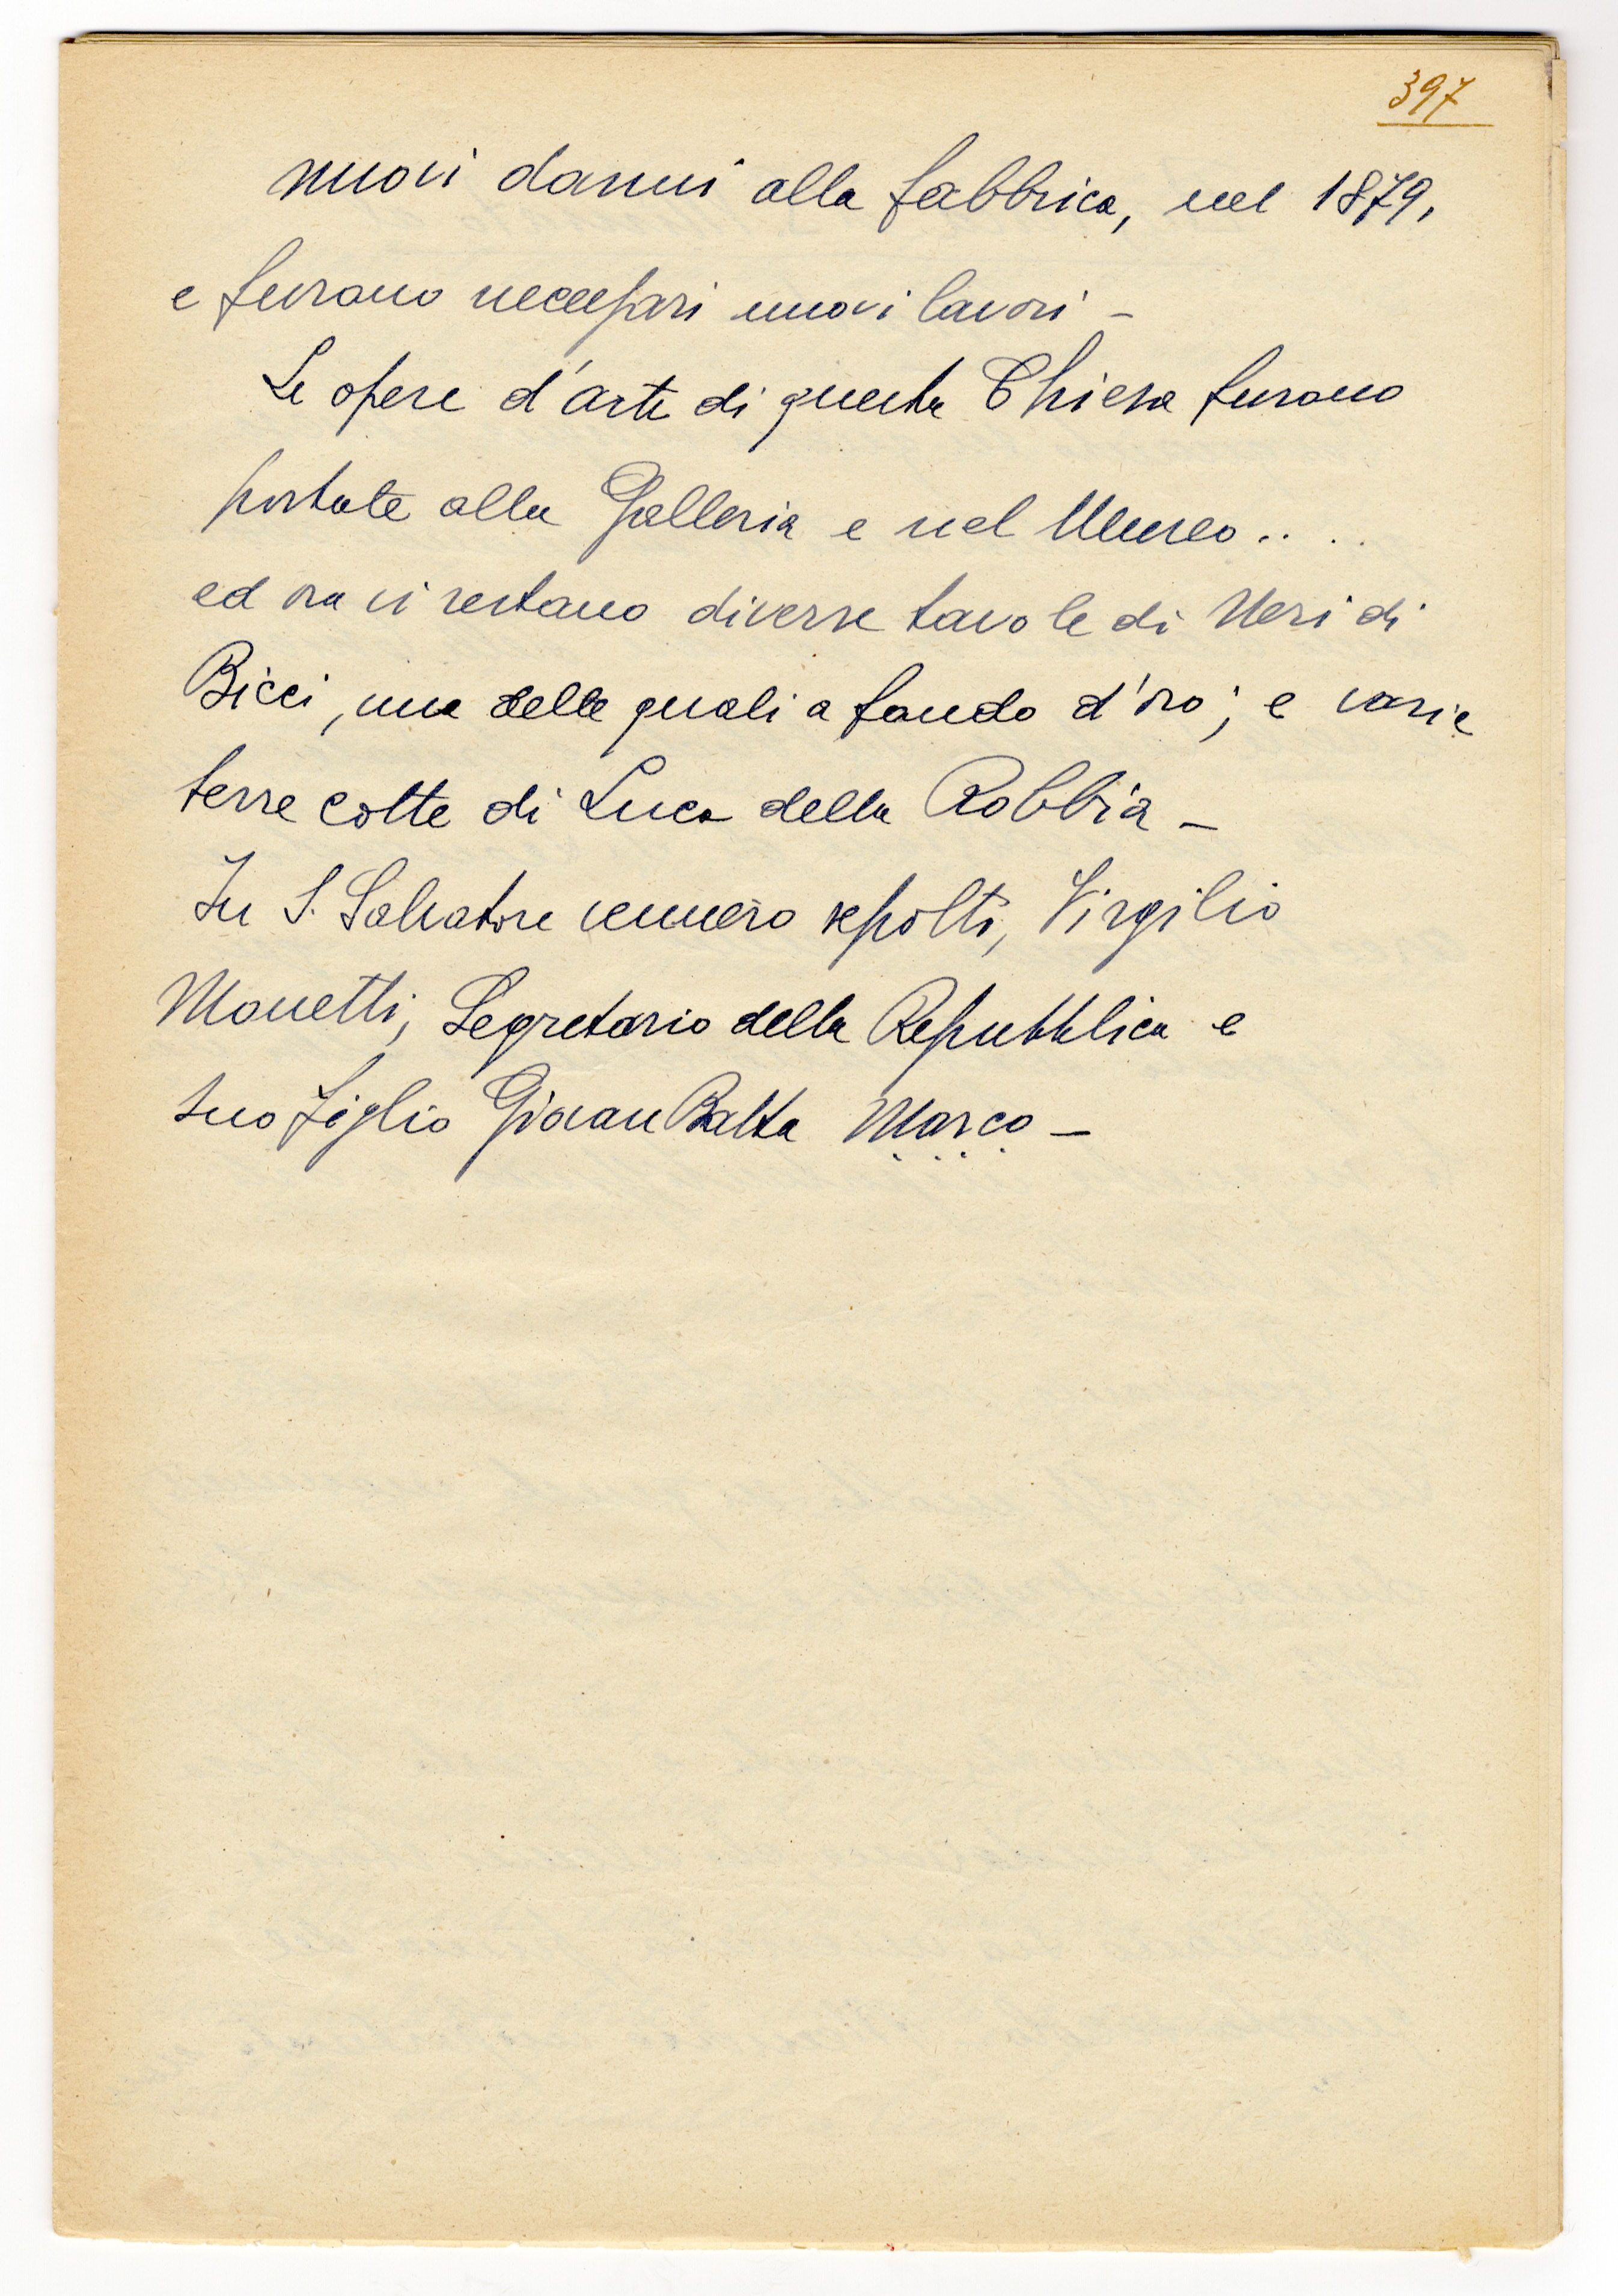 397
nuovi danni alla fabbrica, nel 1879,
e furono necessari nuovi lavori –
Le opere d'arte di questa Chiesa furono
portate alla Galleria e nel Museo.. ..
ed ora vi restano diverse tavole di Neri di
Bicci, una delle quali a fondo d'oro; e varie
terre cotte di Luca della Robbia –
In S. Salvatore vennero sepolti, Virgilio
Monetti, Segretario della Repubblica e
suo figlio Giovan Batta Marco –